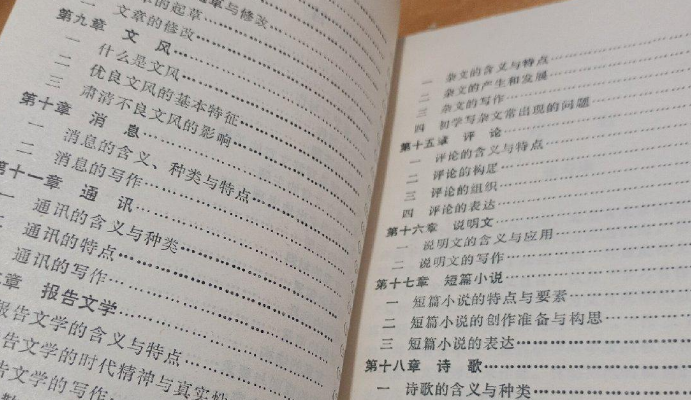 章的起草
章与修改
二 文章的修改
第九章 文 风
一 什么是文风
二 优良文风的基本特征
三 肃清不良文风的影响
第十章 消 息
一 消息的含义、种类与特点
二 消息的写作
第十一章 通 讯
通讯的含义与种类
通讯的特点
通讯的写作
章 报告文学
报告文学的含义与特点
告文学的时代精神与真实性
告文学的写作
一 杂文的含义与特点
二 杂文的产生和发展
三 杂文的写作
四 初学写杂文常出现的问题
第十五章 评 论
一 评论的含义与特点
二 评论的构思
三 评论的组织
四 评论的表达
第十六章 说明文
一 说明文的含义与应用
二 说明文的写作
第十七章 短篇小说
一 短篇小说的特点与要素
二 短篇小说的创作准备与构思
三 短篇小说的表达
第十八章 诗 歌
一 诗歌的含义与种类